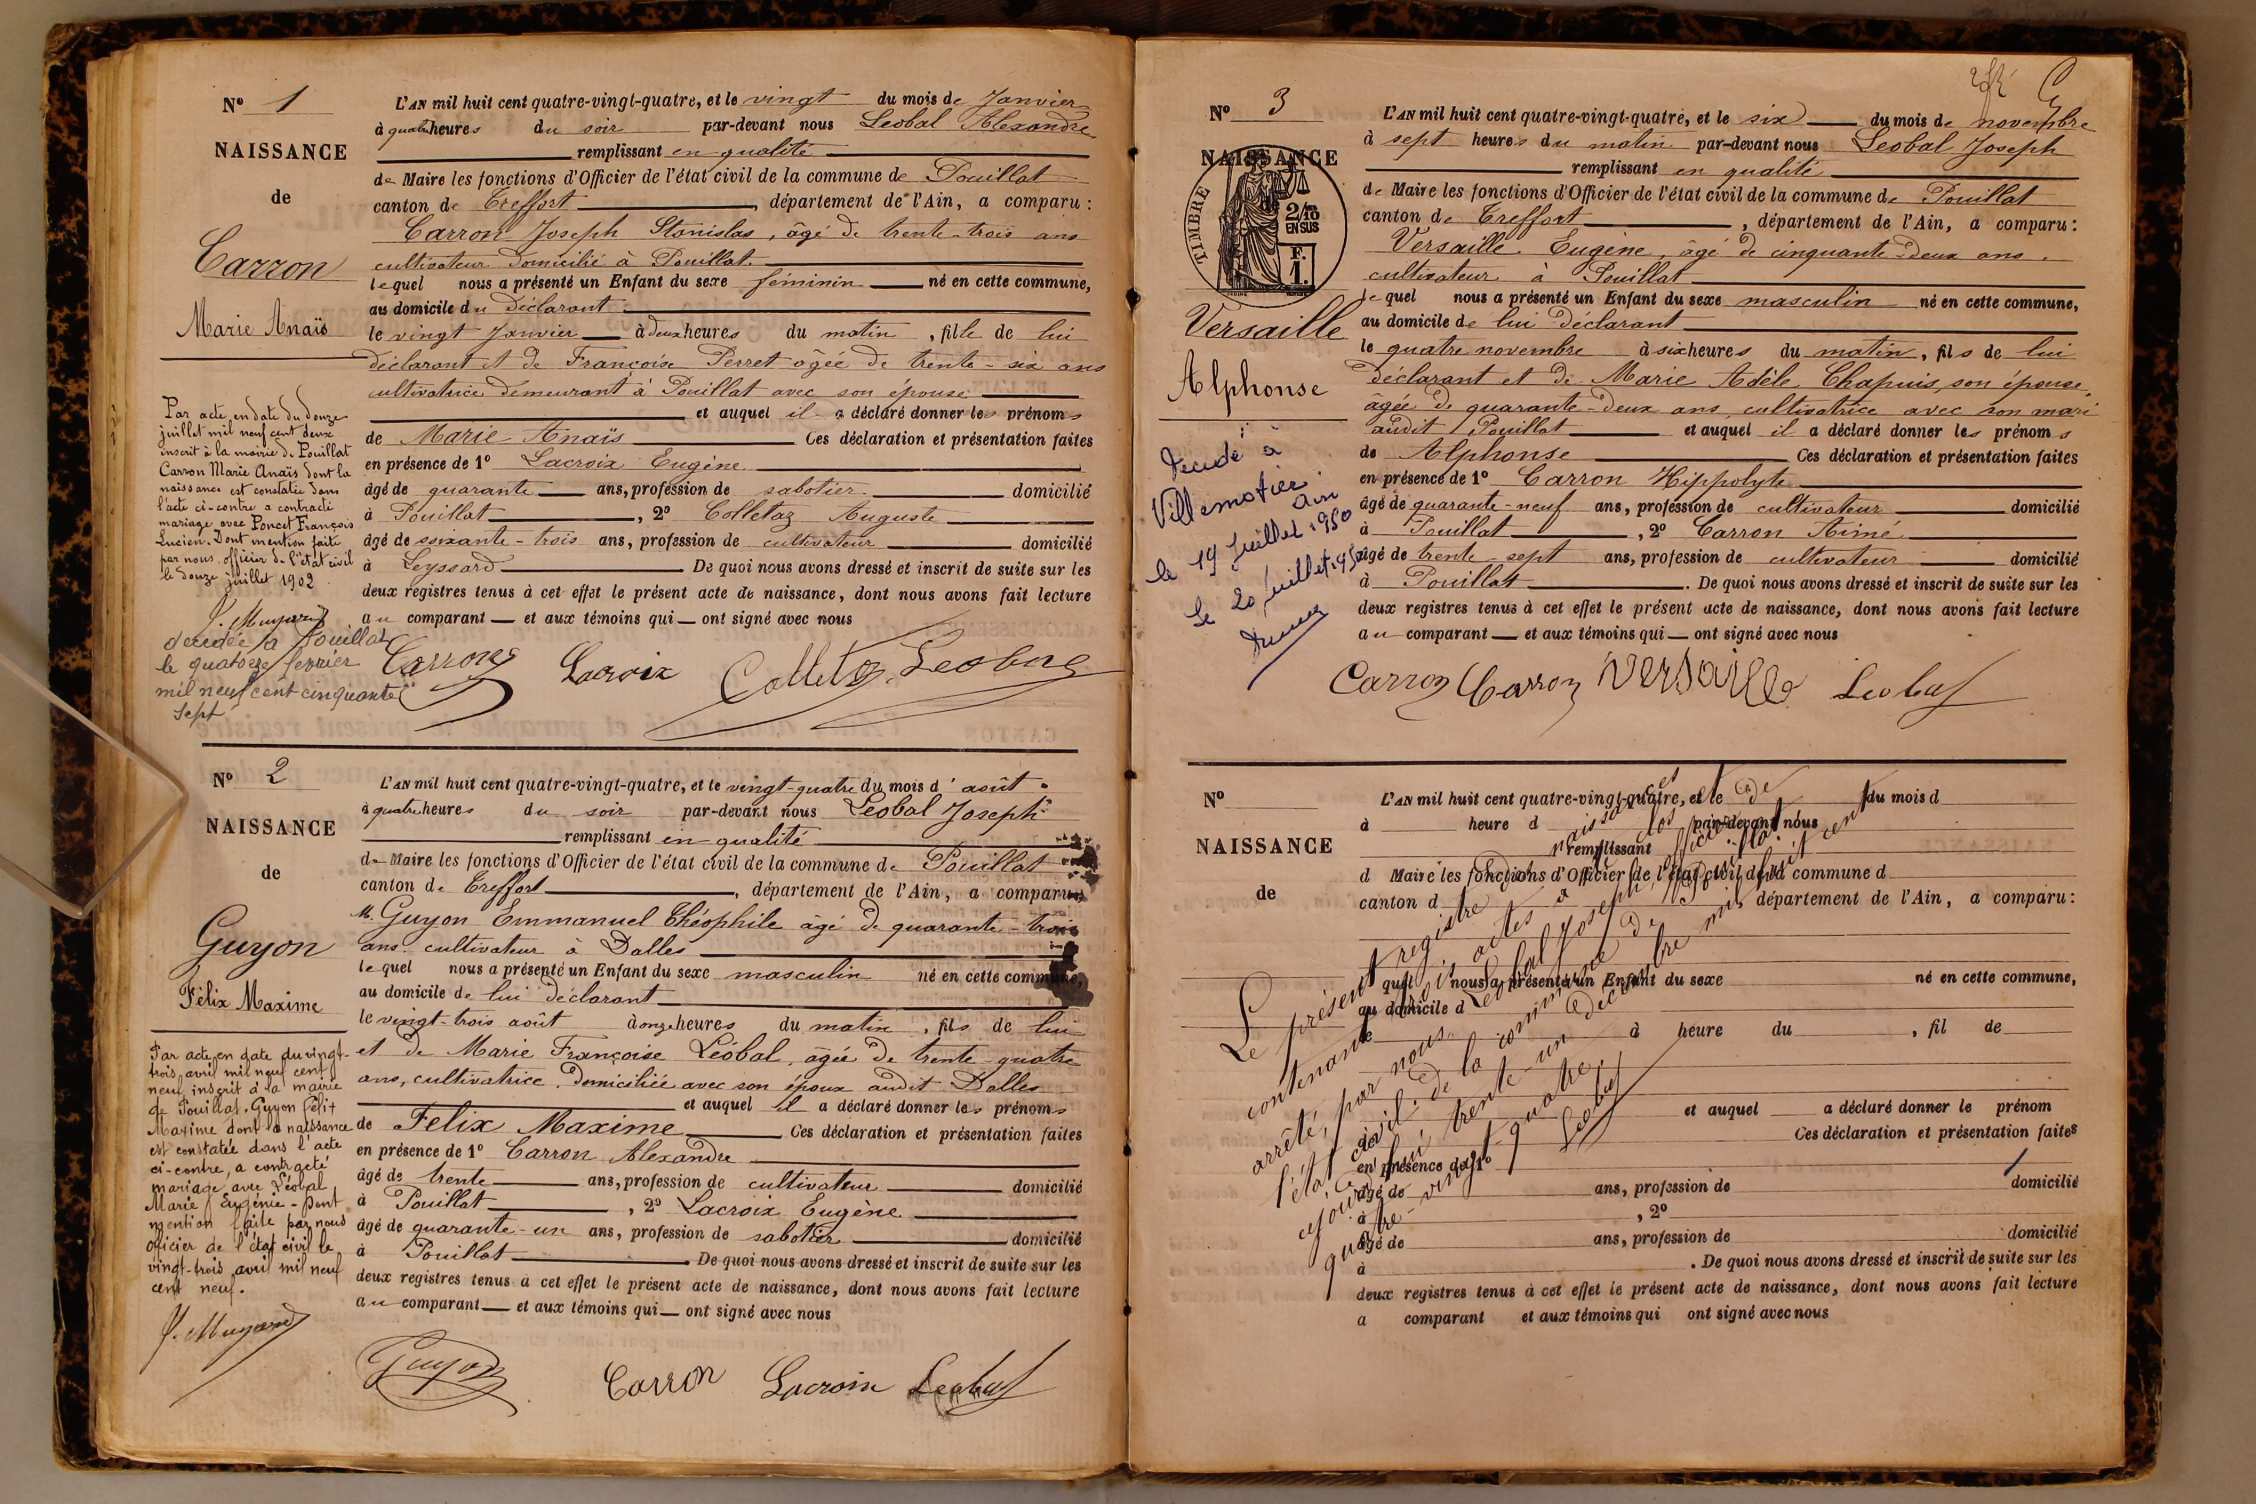 Nº 1
NAISSANCE
de
Carron
Marie Anaïs
L'AN mil huit cent quatre-vingt-quatre, et le vingt du mois de Janvier
à quatre heures du soir par-devant nous Léobal Alexandre
remplissant en qualité
de Maire les fonctions d'Officier de l'état civil de la commune de Pouillat
canton de Treffort, département de l'Ain, a comparu :
Carron Joseph Stanislas, âgé de trente-trois ans
cultivateur domicilié à Pouillat.
lequel nous a présenté un Enfant du sexe féminin né en cette commune,
au domicile du déclarant
le vingt Janvier à deux heures du matin, fille de lui
déclarant et de Françoise Perret âgée de trente-six ans
cultivatrice demeurant à Pouillat avec son épouse
et auquel il a déclaré donner les prénoms
de Marie Anaïs Ces déclaration et présentation faites
en présence de 1º Lacroix Eugène
âgé de quarante ans, profession de sabotier domicilié
à Pouillat, 2º Colletaz Auguste
âgé de soixante-trois ans, profession de cultivateur domicilié
à Leyssard De quoi nous avons dressé et inscrit de suite sur les
deux registres tenus à cet effet le présent acte de naissance, dont nous avons fait lecture
au comparant et aux témoins qui ont signé avec nous
Carron Lacroix Colletaz Léobal
Par acte en date du douze
juillet mil neuf cent deux
inscrit à la mairie de Pouillat
Carron Marie Anaïs dont la
naissance est constatée dans
l'acte ci-contre a contracté
mariage avec Poncet François
Lucien. Dont mention faite
par nous officier de l'état civil
le douze juillet 1902
décédée à Pouillat
le quatorze février
mil neuf cent cinquante
sept
Nº 2
NAISSANCE
de
Guyon
Félix Maxime
L'AN mil huit cent quatre-vingt-quatre, et le vingt-quatre du mois d'août
à quatre heures du soir par-devant nous Léobal Joseph
remplissant en qualité
de Maire les fonctions d'Officier de l'état civil de la commune de Pouillat
canton de Treffort, département de l'Ain, a comparu,
M. Guyon Emmanuel Théophile âgé de quarante-trois
ans cultivateur à Dalles
lequel nous a présenté un Enfant du sexe masculin né en cette commune,
au domicile de lui déclarant
le vingt-trois août à onze heures du matin, fils de lui
et de Marie Françoise Léobal, âgée de trente-quatre
ans, cultivatrice, domiciliée avec son époux audit Dalles
et auquel il a déclaré donner les prénoms
de Félix Maxime Ces déclaration et présentation faites
en présence de 1º Carron Alexandre
âgé de trente ans, profession de cultivateur domicilié
à Pouillat, 2º Lacroix Eugène
âgé de quarante-un ans, profession de sabotier domicilié
à Pouillat De quoi nous avons dressé et inscrit de suite sur les
deux registres tenus à cet effet le présent acte de naissance, dont nous avons fait lecture
au comparant et aux témoins qui ont signé avec nous
Guyon Carron Lacroix Léobal
Par acte en date du vingt-
trois avril mil neuf cent
neuf inscrit à la mairie
de Pouillat, Guyon Félix
Maxime dont la naissance
est constatée dans l'acte
ci-contre, a contracté
mariage avec Léobal
Marie Eugénie - Dont
mention faite par nous
officier de l'état civil le
vingt-trois avril mil neuf
cent neuf.
Nº 3
NAISSANCE
de
TIMBRE
2/10
EN SUS
F.
1.
Versaille
Alphonse
L'AN mil huit cent quatre-vingt-quatre, et le six du mois de novembre
à sept heures du matin par-devant nous Léobal Joseph
remplissant en qualité
de Maire les fonctions d'Officier de l'état civil de la commune de Pouillat
canton de Treffort, département de l'Ain, a comparu :
Versaille Eugène, âgé de cinquante-deux ans.
cultivateur à Pouillat
lequel nous a présenté un Enfant du sexe masculin né en cette commune,
au domicile de lui déclarant
le quatre novembre à six heures du matin, fils de lui
déclarant et de Marie Adèle Chapuis, son épouse,
âgée de quarante-deux ans, cultivatrice avec son mari
audit Pouillat et auquel il a déclaré donner les prénoms
de Alphonse Ces déclaration et présentation faites
en présence de 1º Carron Hippolyte
âgé de quarante-neuf ans, profession de cultivateur domicilié
à Pouillat, 2º Carron Aimé
âgé de trente-sept ans, profession de cultivateur domicilié
à Pouillat. De quoi nous avons dressé et inscrit de suite sur les
deux registres tenus à cet effet le présent acte de naissance, dont nous avons fait lecture
au comparant et aux témoins qui ont signé avec nous
Carron Carron Versaille Léobal
Décédé à
Villemotier
Ain
le 19 juillet 1950
le 20 juillet 1950
Nº
NAISSANCE
de
L'AN mil huit cent quatre-vingt-quatre, et le du mois d
à heure d par-devant nous
remplissant
d Maire les fonctions d'Officier de l'état civil de la commune d
canton d département de l'Ain, a comparu :
quel nous a présenté un Enfant du sexe né en cette commune,
au domicile d
le à heure du , fil de
et auquel a déclaré donner le prénom
Ces déclaration et présentation faites
en présence de 1º
âgé de ans, profession de domicilié
à , 2º
âgé de ans, profession de domicilié
à . De quoi nous avons dressé et inscrit de suite sur les
deux registres tenus à cet effet le présent acte de naissance, dont nous avons fait lecture
a comparant et aux témoins qui ont signé avec nous
Le présent registre des naissances
contenant trois actes a été clos et
arrêté, par nous Léobal Joseph, officier de
l'état civil de la commune de Pouillat
ce jourd'hui trente-un décembre mil huit cent
quatre-vingt-quatre.
Léobal